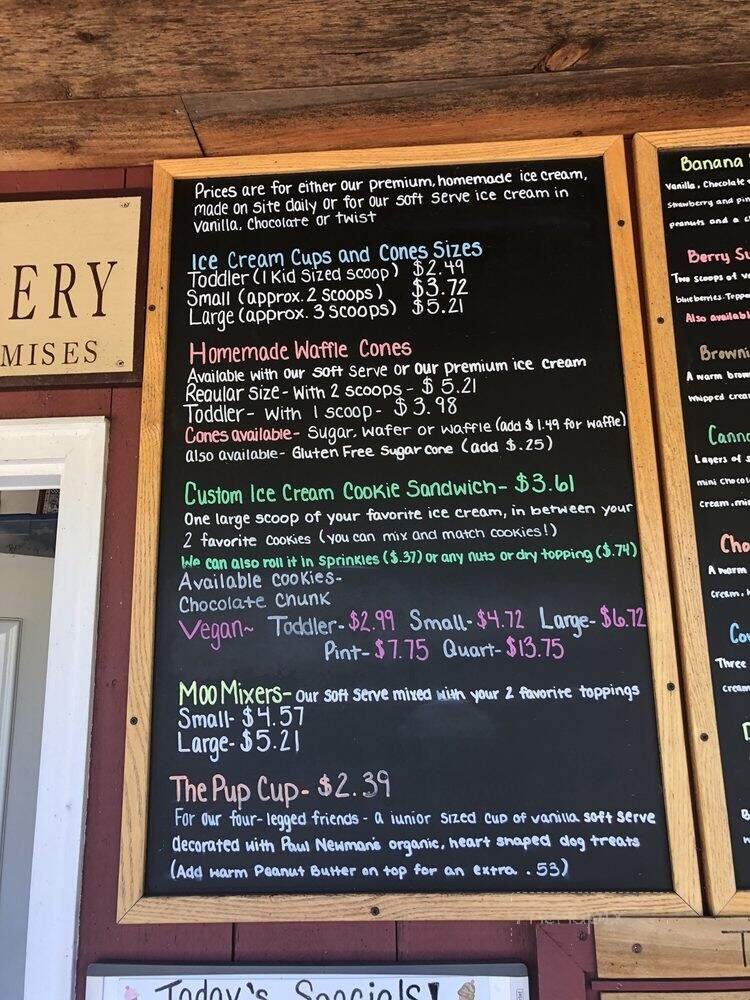 ERY
MISES
Prices are for either our premium, homemade ice cream,
made on site daily or for our soft serve ice cream in
vanilla, chocolate or twist
Ice Cream Cups and Cones Sizes
Toddler (1 Kid Sized scoop) $2.49
Small (approx. 2 scoops) $3.72
Large (approx. 3 scoops) $5.21
Homemade Waffle Cones
Available with our soft serve or our premium ice cream
Regular size - with 2 scoops - $5.21
Toddler - with 1 scoop - $3.98
Cones available - Sugar, wafer or waffle (add $1.49 for waffle)
also available - Gluten Free Sugar Cone (add $.25)
Custom Ice Cream Cookie Sandwich - $3.61
One large scoop of your favorite ice cream, in between your
2 favorite cookies (you can mix and match cookies!)
We can also roll it in sprinkles ($.37) or any nuts or dry topping ($.74)
Available cookies-
Chocolate Chunk
Vegan~ Toddler-$2.99 Small-$4.72 Large-$6.72
Pint-$7.75 Quart-$13.75
Moo Mixers- our soft serve mixed with your 2 favorite toppings
Small- $4.57
Large- $5.21
The Pup Cup- $2.39
For our four-legged friends - a junior sized cup of vanilla soft serve
decorated with Paul Newman's organic, heart shaped dog treats
(Add warm Peanut Butter on top for an extra .53)
Banana
Vanilla, Chocolate
strawberry and pin
peanuts and a c
Berry Su
Two scoops of va
blueberries. Toppe
Also availabl
Browni
A warm brow
whipped crea
Canno
Layers of s
mini chocol
cream, min
Cho
A warm
cream,
Co
Three
cream
Today's Specials!